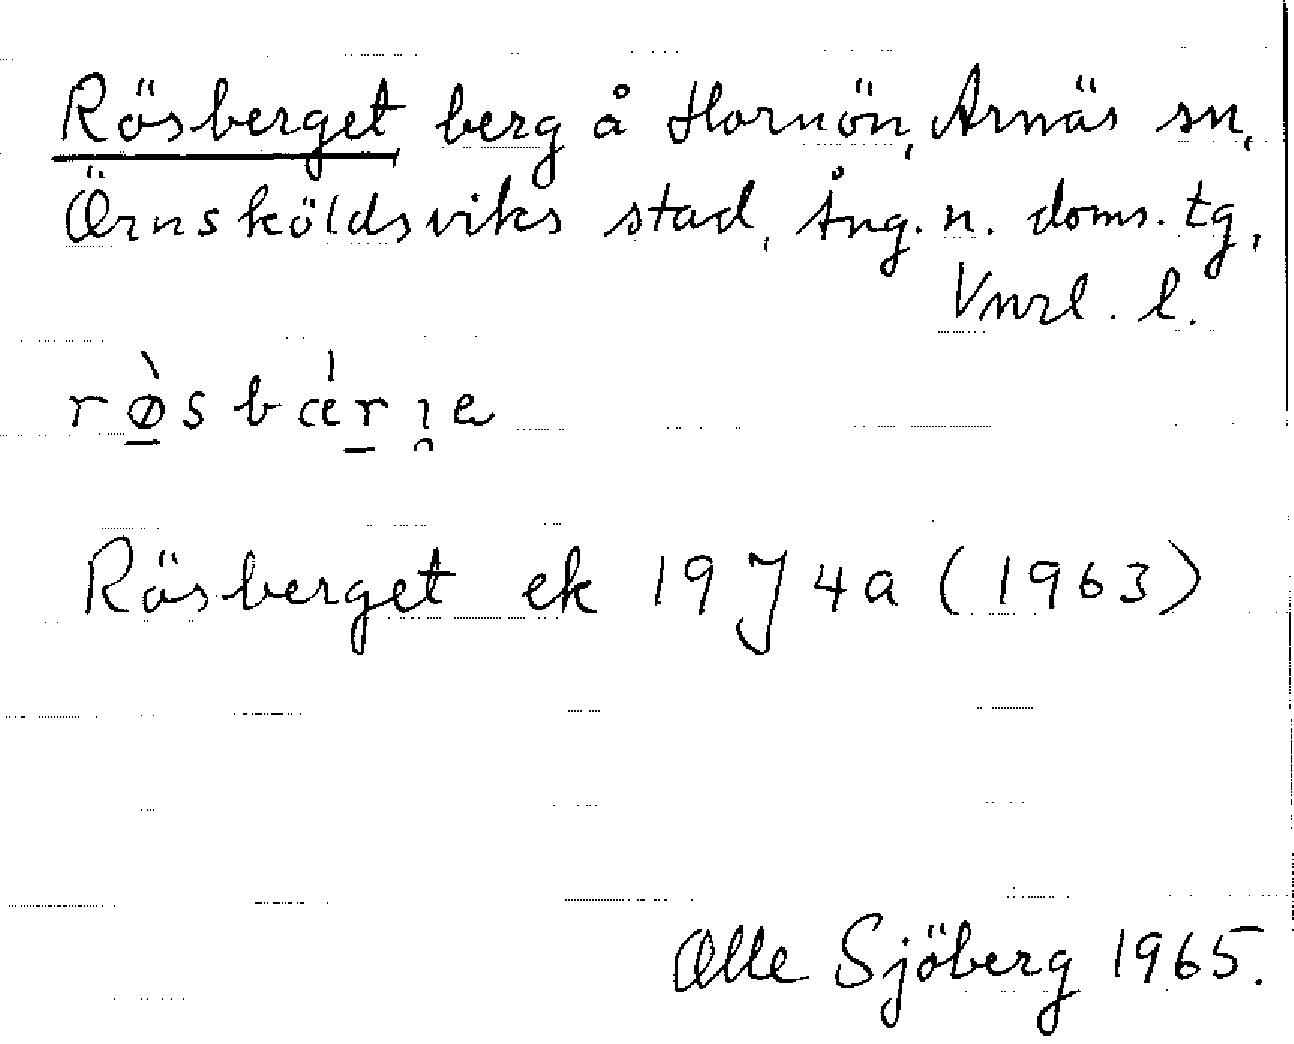 Rösberget berg å Hornön, Arnäs sn,
Örnsköldsviks stad, Ång. n. doms. tg,
Vnrl. l.
rø̠̀sbæ̍r̠ı̯e
Rösberget ek 19 J 4a (1963)
Olle Sjöberg 1965.